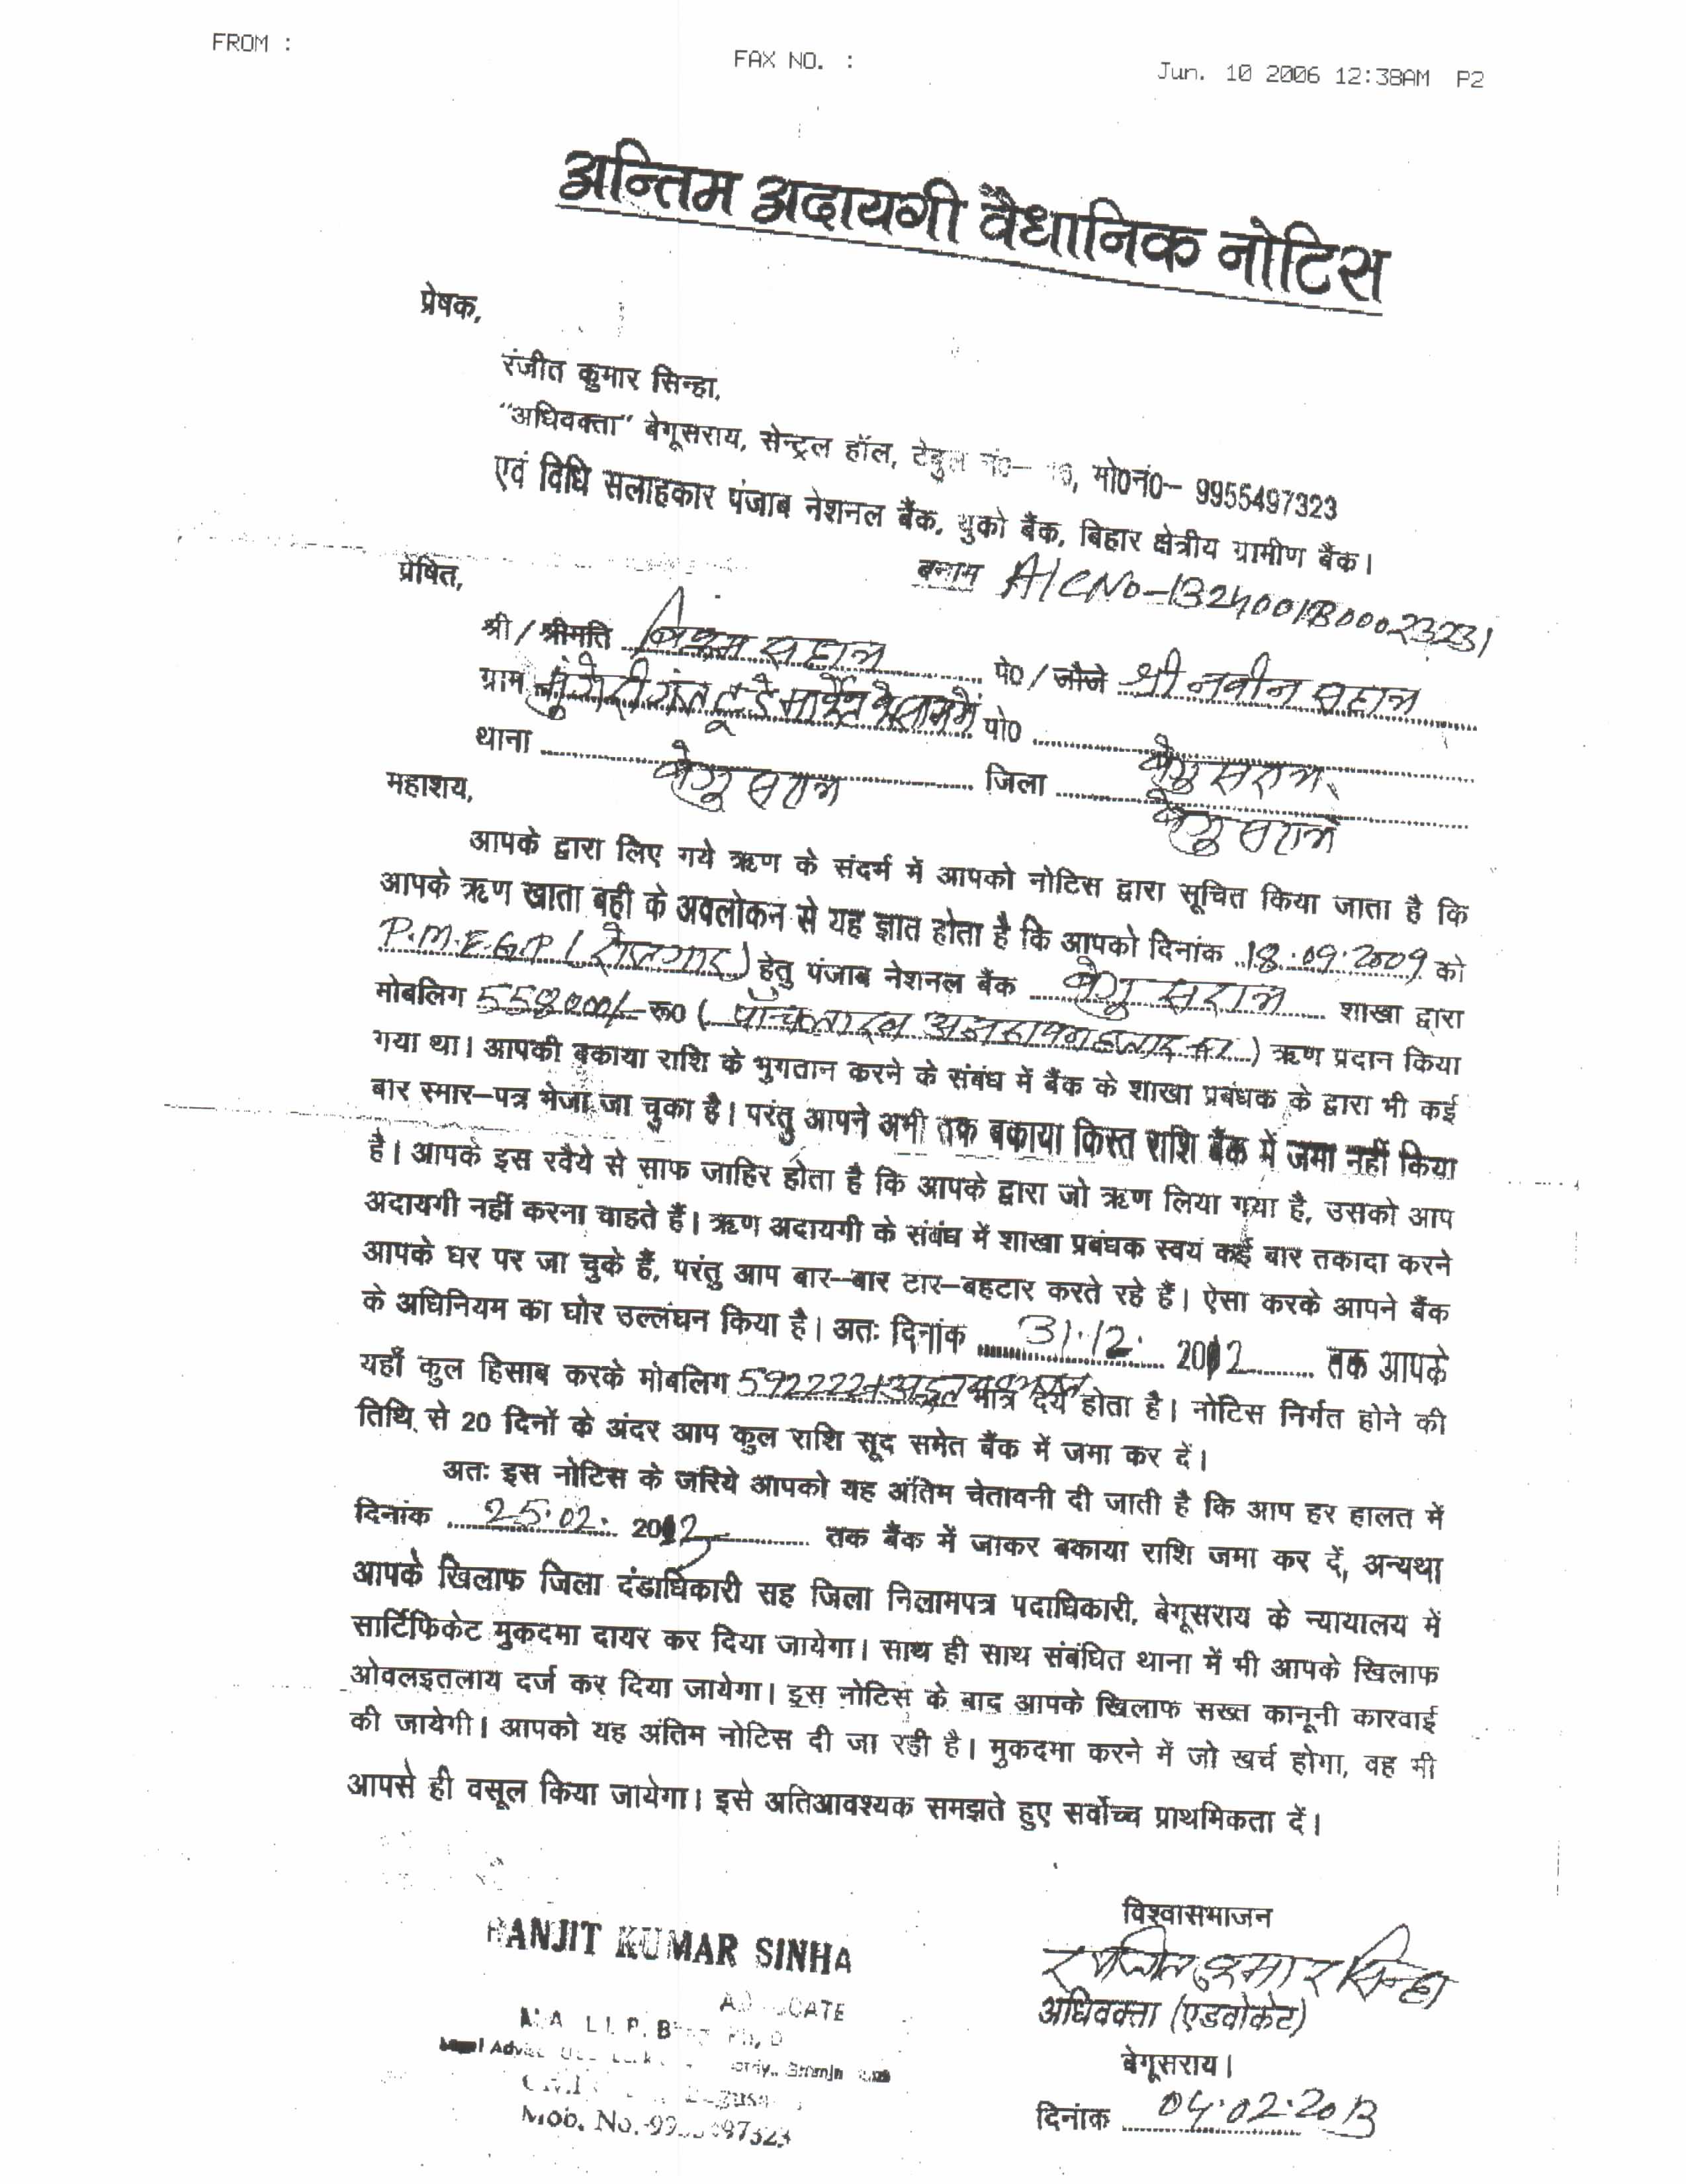 FROM :
FAX NO. :
Jun. 10 2006 12:38AM P2
अन्तिम अदायगी वैधानिक नोटिस
प्रेषक,
रंजीत कुमार सिन्हा,
“अधिवक्ता” बेगूसराय, सेन्ट्रल हॉल, टेबुल नं०– मो०नं०– 9955497323
एवं विधि सलाहकार पंजाब नेशनल बैंक, युको बैंक, बिहार क्षेत्रीय ग्रामीण बैंक।
बनाम A/C No-
प्रेषित,
श्री / श्रीमति पे० / जौजे श्री नवीन सहाय
ग्राम पो० बेगुसराय
थाना बेगुसराय जिला बेगुसराय
महाशय,
आपके द्वारा लिए गये ऋण के संदर्भ में आपको नोटिस द्वारा सूचित किया जाता है कि
आपके ऋण खाता बही के अवलोकन से यह ज्ञात होता है कि आपको दिनांक 18.09.2009 को
P.M.E.G.P (रोजगार) हेतु पंजाब नेशनल बैंक बेगुसराय शाखा द्वारा
मोबलिग रू० ( ) ऋण प्रदान किया
गया था। आपकी बकाया राशि के भुगतान करने के संबंध में बैंक के शाखा प्रबंधक के द्वारा भी कई
बार स्मार–पत्र भेजा जा चुका है। परंतु आपने अभी तक बकाया किस्त राशि बैंक में जमा नहीं किया
है। आपके इस रवैये से साफ जाहिर होता है कि आपके द्वारा जो ऋण लिया गया है, उसको आप
अदायगी नहीं करना चाहते हैं। ऋण अदायगी के संबंध में शाखा प्रबंधक स्वयं कई बार तकादा करने
आपके घर पर जा चुके हैं, परंतु आप बार–बार टार–बहटार करते रहे हैं। ऐसा करके आपने बैंक
के अधिनियम का घोर उल्लंघन किया है। अतः दिनांक 31.12. 2012 तक आपके
यहाँ कुल हिसाब करके मोबलिग 592222+ मात्र देय होता है। नोटिस निर्गत होने की
तिथि से 20 दिनों के अंदर आप कुल राशि सूद समेत बैंक में जमा कर दें।
अतः इस नोटिस के जरिये आपको यह अंतिम चेतावनी दी जाती है कि आप हर हालत में
दिनांक 25.02. तक बैंक में जाकर बकाया राशि जमा कर दें, अन्यथा
आपके खिलाफ जिला दंडाधिकारी सह जिला निलामपत्र पदाधिकारी, बेगूसराय के न्यायालय में
सार्टिफिकेट मुकदमा दायर कर दिया जायेगा। साथ ही साथ संबंधित थाना में भी आपके खिलाफ
ओवलइतलाय दर्ज कर दिया जायेगा। इस नोटिस के बाद आपके खिलाफ सख्त कानूनी कारवाई
की जायेगी। आपको यह अंतिम नोटिस दी जा रही है। मुकदमा करने में जो खर्च होगा, वह भी
आपसे ही वसूल किया जायेगा। इसे अतिआवश्यक समझते हुए सर्वोच्च प्राथमिकता दें।
विश्वासभाजन
रंजीत कुमार सिन्हा
अधिवक्ता (एडवोकेट)
बेगूसराय।
दिनांक 04.02.2013
RANJIT KUMAR SINHA
Mob. No.-